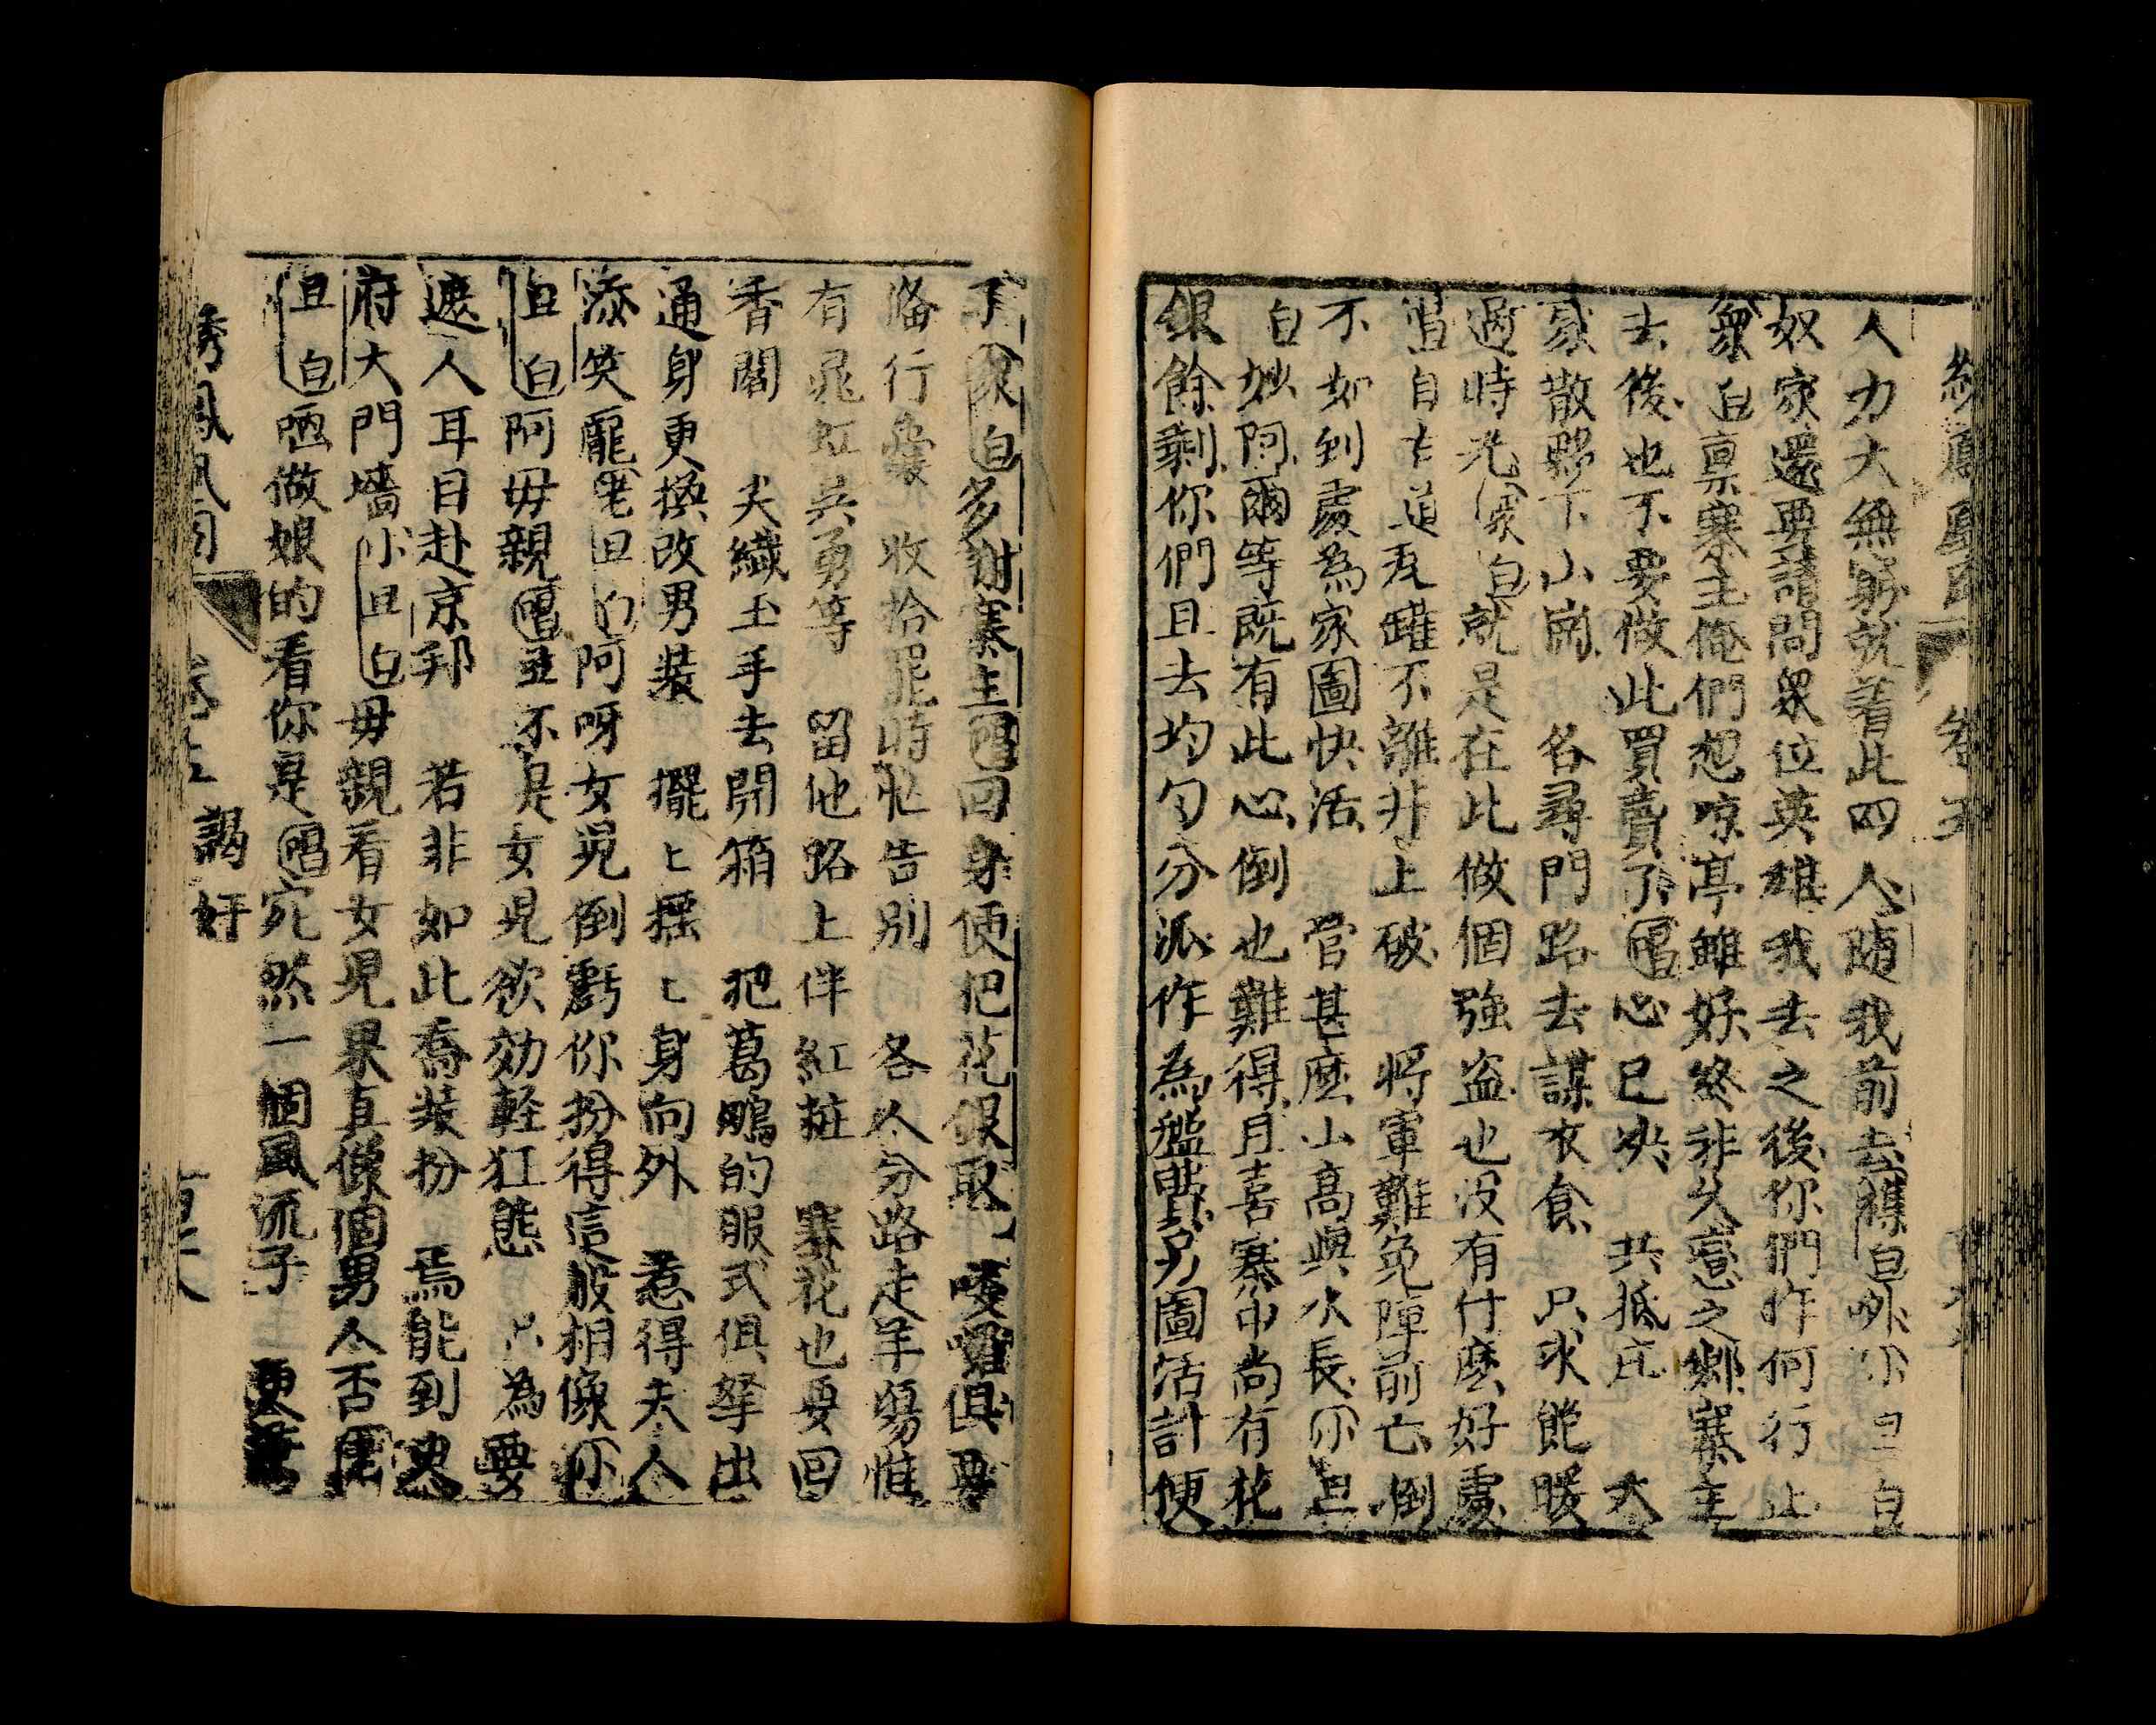 人力大無窮就着此四人随我前去襍白咻小旦白
奴家還要請問衆位英雄我去之後你們作何行止
衆白禀寨主俺們想凉亭雖好終非久戀之鄉寨主
去後也不要做此買賣了唱心已决 共抵庄 大
家散夥下山崗 各尋門路去謀衣食 只求飽暖
過時光衆白就是在此做個強盗也没有什麽好處
旦自古道瓦罐不離井上破 将軍難免陣前亡倒
不如到處為家圖快活 管甚麽山高與水長小旦
白妙阿爾等既有此心倒也難得且喜寨中尚有花
銀餘剩你們且去均匀分派作為盤費另圖活計便
了衆白多謝寨主唱回身便把花銀取 嘍囉俱要
俻行囊 收拾罷時忙告别 各人分路走羊腸惟
有晁虹共勇等 留他路上伴紅粧 寨花也要回
香閣 尖纎玉手去開箱 把葛鵰的服式俱拏出
通身更換改男裝 擺匕摇匕身向外 惹得夫人
添笑龐老旦白阿呀女児倒虧你扮得這般相像小
旦白阿毋親唱並不是女児欲効軽狂態 只為要
遮人耳目赴京邦 若非如此喬裝扮 焉能到史
府大門墻小旦白毋親看女児果真像個男人否唐
旦白哂做娘的看你是唱宛然一個風流子 更兼
繡鳳凰 卷五 謁奸